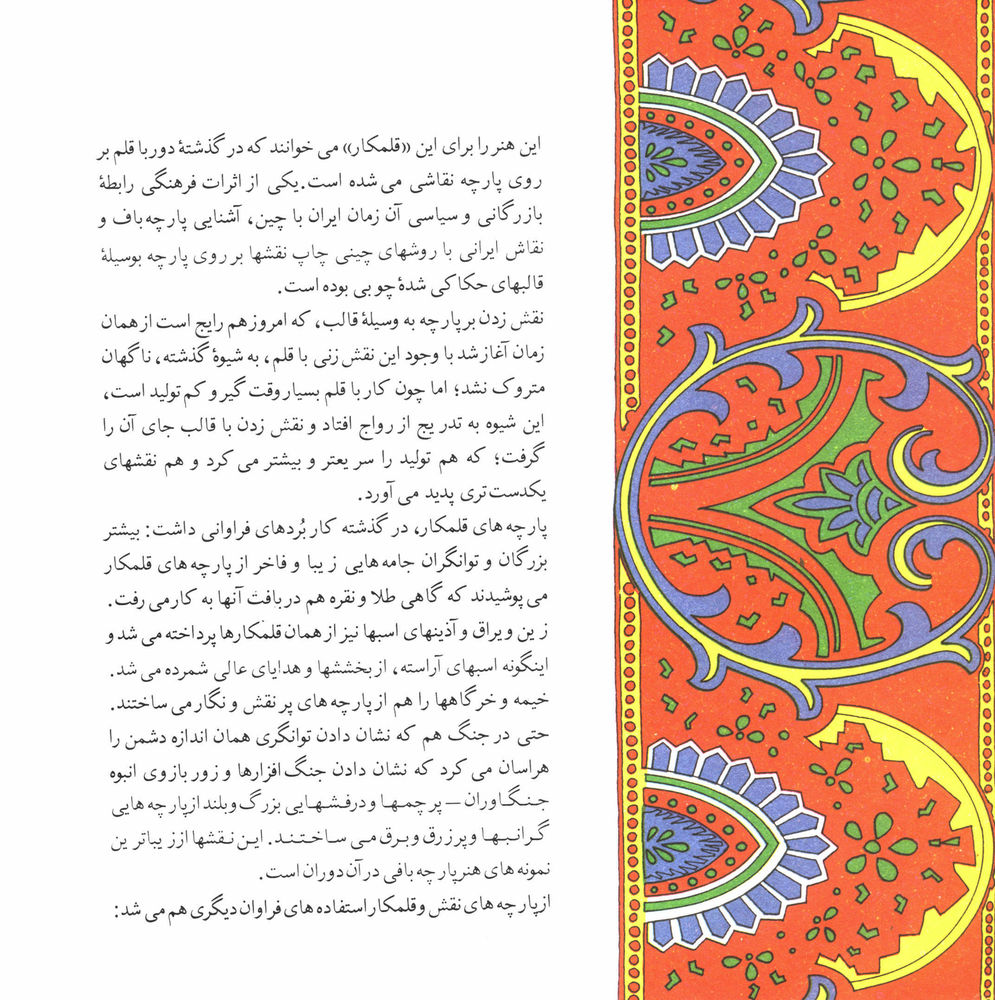 این هنر را برای این «قلمکار» می خوانند که در گذشتهٔ دور با قلم بر
روی پارچه نقاشی می شده است. یکی از اثرات فرهنگی رابطهٔ
بازرگانی و سیاسی آن زمان ایران با چین، آشنایی پارچه باف و
نقاش ایرانی با روشهای چینی چاپ نقشها بر روی پارچه بوسیلهٔ
قالبهای حکاکی شدهٔ چوبی بوده است.
نقش زدن بر پارچه به وسیلهٔ قالب، که امروز هم رایج است از همان
زمان آغاز شد با وجود این نقش زنی با قلم، به شیوهٔ گذشته، ناگهان
متروک نشد؛ اما چون کار با قلم بسیار وقت گیر و کم تولید است،
این شیوه به تدریج از رواج افتاد و نقش زدن با قالب جای آن را
گرفت؛ که هم تولید را سریعتر و بیشتر می کرد و هم نقشهای
یکدست تری پدید می آورد.
پارچه های قلمکار، در گذشته کاربُردهای فراوانی داشت: بیشتر
بزرگان و توانگران جامه هایی زیبا و فاخر از پارچه های قلمکار
می پوشیدند که گاهی طلا و نقره هم در بافت آنها به کار می رفت.
زین و یراق و آذینهای اسبها نیز از همان قلمکارها پرداخته می شد و
اینگونه اسبهای آراسته، از بخششها و هدایای عالی شمرده می شد.
خیمه و خرگاهها را هم از پارچه های پر نقش و نگار می ساختند.
حتی در جنگ هم که نشان دادن توانگری همان اندازه دشمن را
هراسان می کرد که نشان دادن جنگ افزارها و زور بازوی انبوه
جنگاوران — پرچمها و درفشهایی بزرگ و بلند از پارچه هایی
گرانبها و پر زرق و برق می ساختند. این نقشها از زیباترین
نمونه های هنر پارچه بافی در آن دوران است.
از پارچه های نقش و قلمکار استفاده های فراوان دیگری هم می شد: